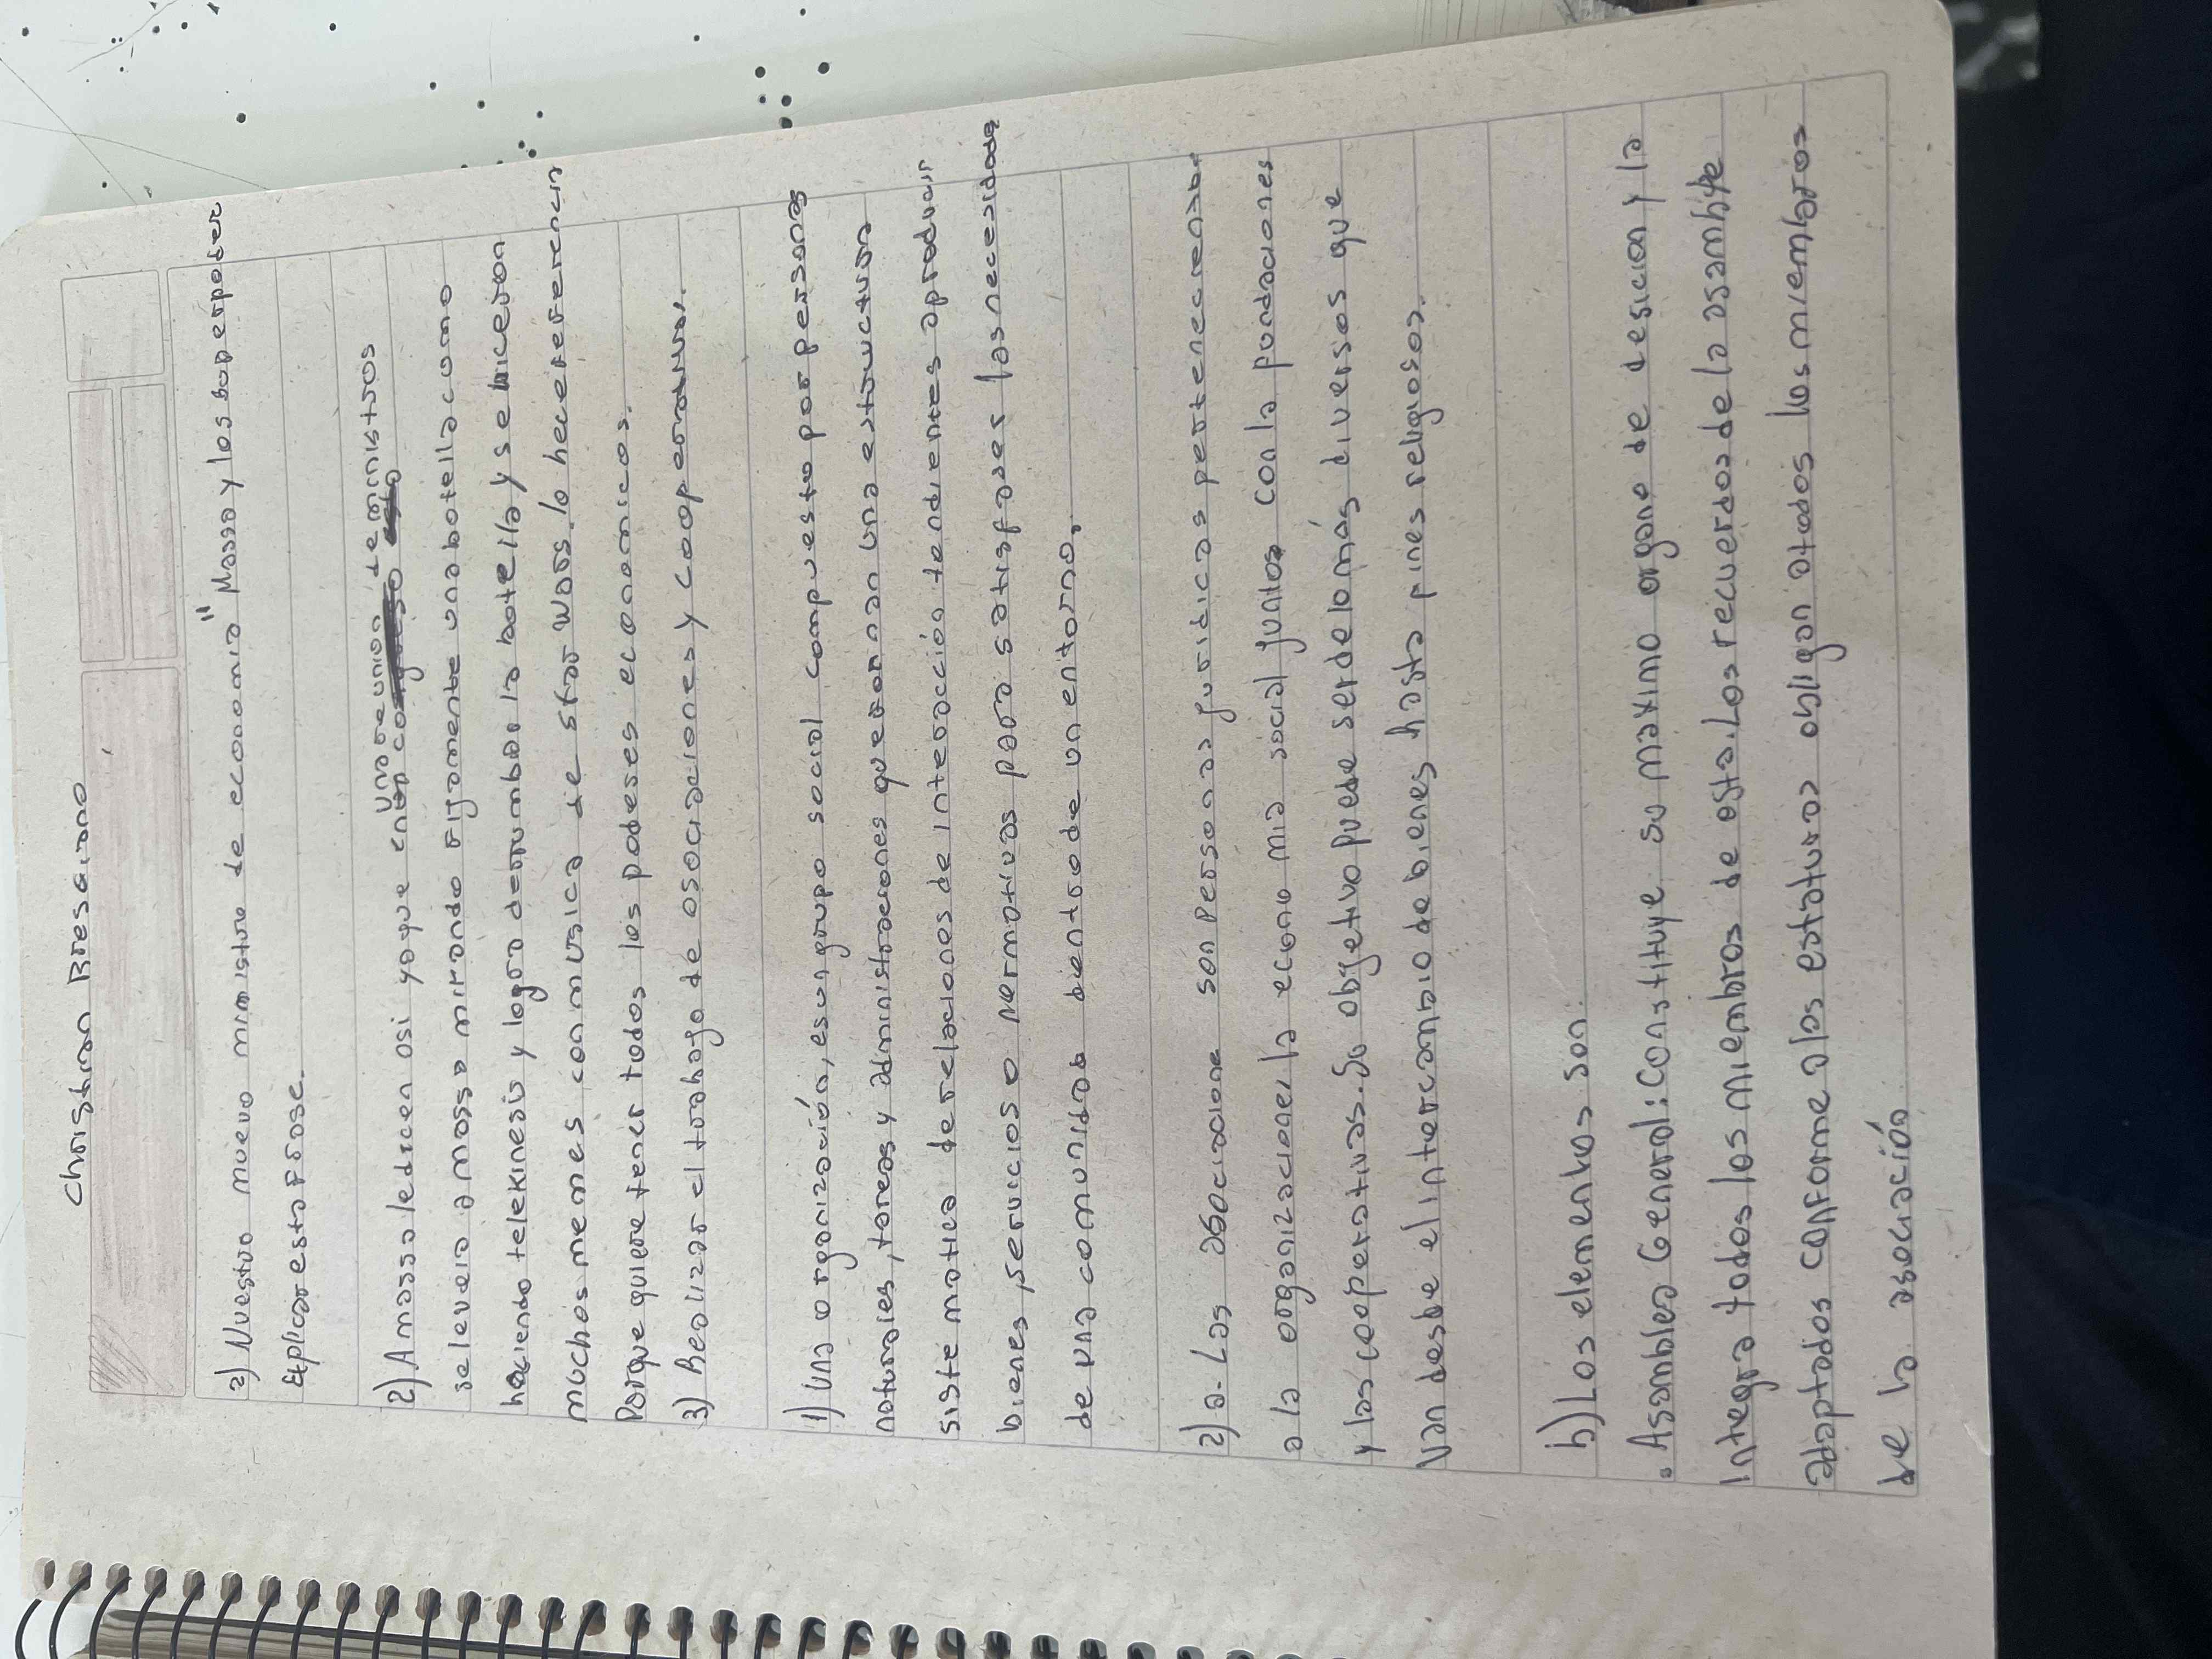 Christian Bresciano
2) Nuestro nuevo ministro de economia "Massa y los superpoder
Explicar esta frase.
una reunion de ministros
2) A massa le dicen asi ya que en
se le veia a massa mirando fijamente una botella como
haciendo telekinesis y logro derrumbar la botella y se hiceron
muchos memes con musica de star wars. lo hace referencia
Porque quiere tener todos los poderes economicos.
3) Realizar el trabajo de asociaciones y cooperativas.
1) Una organización, es un grupo social compuesto por personas
naturales, tareas y administraciones que forman una estructura
sistematica de relaciones de interacción tendientes a producir
bienes, servicios o normativas para satisfacer las necesidades
de una comunidad dentro de un entorno.
2) a- Las asociacione son personas juridicas pertenecientes
a la organizaciones la economia social juntos con la fundaciones
y las cooperativas. Su objetivo puede ser de lo más diversos que
Van desde el intercambio de bienes hasta fines religiosos.
b) Los elementos son:
. Asamblea General: Constituye su maximo organo de desicion y la
integra todos los miembros de esta. Los recuerdos de la asamblea
adoptados conforme a los estatutos obligan a todos los miembros
de la asociación